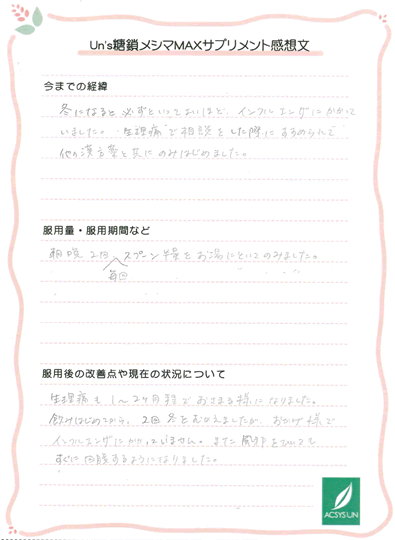 Un's糖鎖メシマMAXサプリメント感想文
今までの経緯
冬になると必ずといっていいほど、インフルエンザにかかって
いました。生理痛で相談をした際にすすめられて
他の漢方薬と共にのみはじめました。
服用量・服用期間など
朝晩2回 スプーン半量をお湯にといてのみました。
毎回
服用後の改善点や現在の状況について
生理痛も1〜2ヶ月程でおさまる様になりました。
飲みはじめてから、2回冬をむかえましたが、おかげ様で
インフルエンザにかかっていません。また風邪をひいても
すぐに回復するようになりました。
ACSYS UN